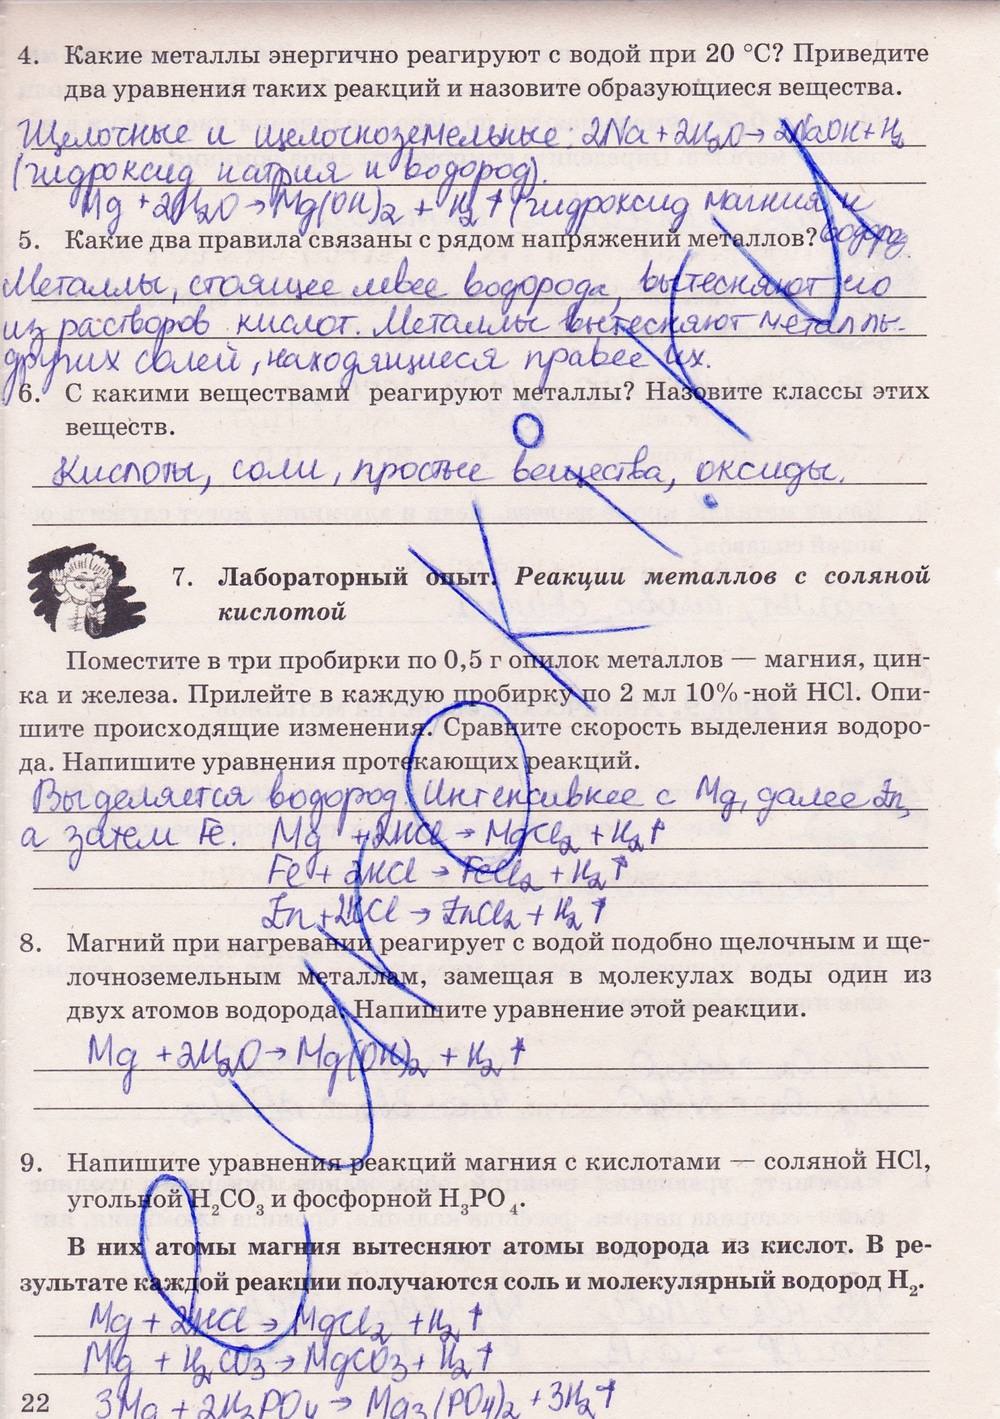 4. Какие металлы энергично реагируют с водой при 20 °С? Приведите
два уравнения таких реакций и назовите образующиеся вещества.
Щелочные и щелочноземельные: 2Na + 2H₂O → 2NaOH + H₂
(гидроксид натрия и водород).
Mg + 2H₂O → Mg(OH)₂ + H₂↑ (гидроксид магния и
водород.
5. Какие два правила связаны с рядом напряжений металлов?
Металлы, стоящее левее водорода, вытесняют его
из растворов кислот. Металлы вытесняют металлы
других солей, находящиеся правее их.
6. С какими веществами реагируют металлы? Назовите классы этих
веществ.
Кислоты, соли, простые вещества, оксиды.
7. Лабораторный опыт. Реакции металлов с соляной
кислотой
Поместите в три пробирки по 0,5 г опилок металлов — магния, цин-
ка и железа. Прилейте в каждую пробирку по 2 мл 10%-ной HCl. Опи-
шите происходящие изменения. Сравните скорость выделения водоро-
да. Напишите уравнения протекающих реакций.
Выделяется водород. Интенсивнее с Mg, далее Zn,
а затем Fe. Mg + 2HCl → MgCl₂ + H₂↑
Fe + 2HCl → FeCl₂ + H₂↑
Zn + 2HCl → ZnCl₂ + H₂↑
8. Магний при нагревании реагирует с водой подобно щелочным и ще-
лочноземельным металлам, замещая в молекулах воды один из
двух атомов водорода. Напишите уравнение этой реакции.
Mg + 2H₂O → Mg(OH)₂ + H₂↑
9. Напишите уравнения реакций магния с кислотами — соляной HCl,
угольной H₂CO₃ и фосфорной H₃PO₄.
В них атомы магния вытесняют атомы водорода из кислот. В ре-
зультате каждой реакции получаются соль и молекулярный водород H₂.
Mg + 2HCl → MgCl₂ + H₂↑
Mg + H₂CO₃ → MgCO₃ + H₂↑
3Mg + 2H₃PO₄ → Mg₃(PO₄)₂ + 3H₂↑
22